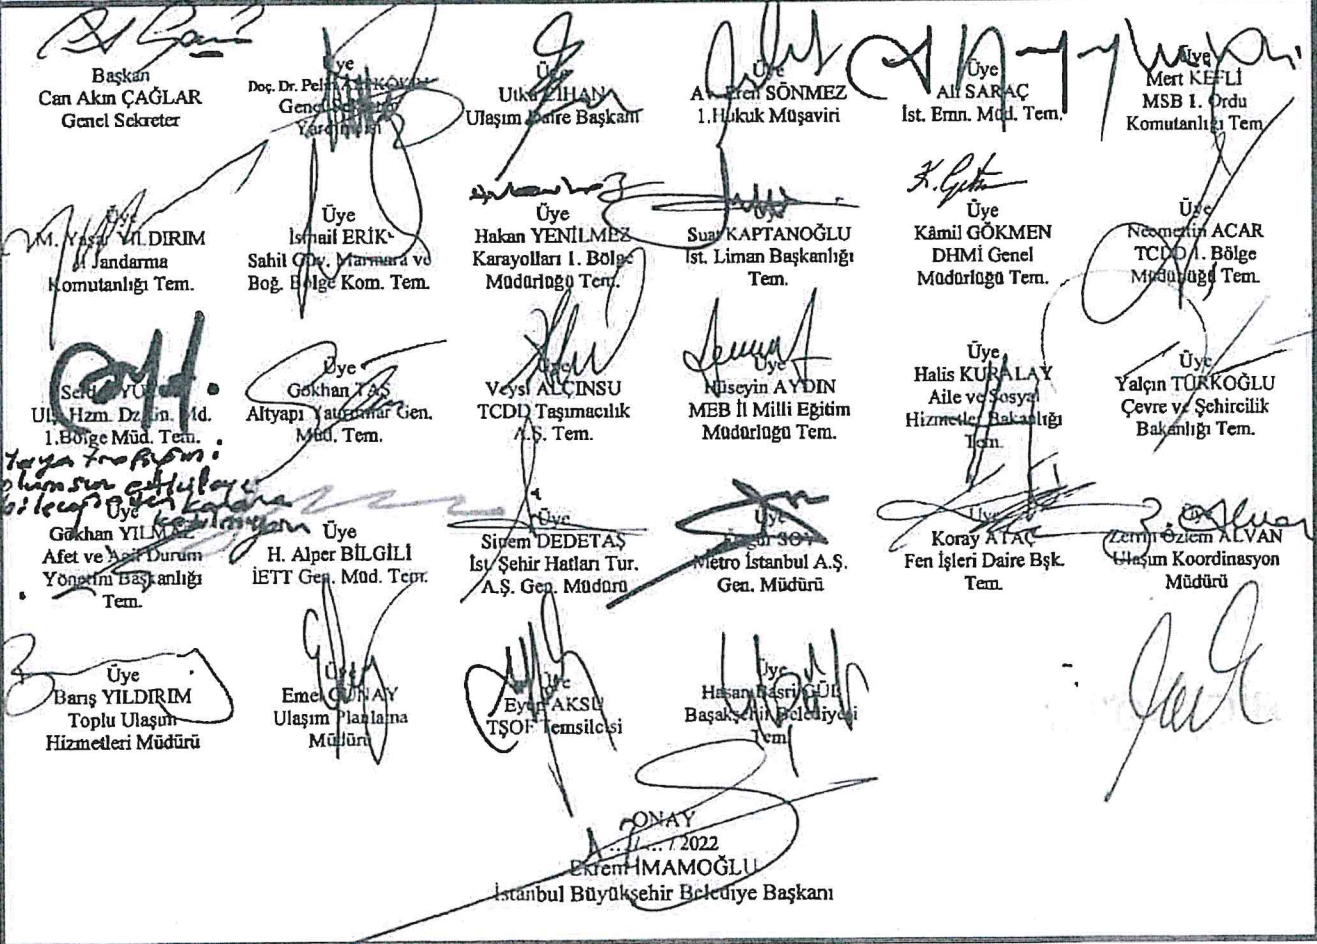 Başkan
Can Akın ÇAĞLAR
Genel Sekreter
Üye
Doç. Dr.
Genel Sekreter
Yardımcısı
Üye
Utku CİHAN
Ulaşım Daire Başkanı
Üye
Av. Eren SÖNMEZ
1.Hukuk Müşaviri
Üye
Ali SARAÇ
İst. Emn. Müd. Tem.
Üye
Mert KEFLİ
MSB 1. Ordu
Komutanlığı Tem.
Üye
M. Yaşar YILDIRIM
Jandarma
Komutanlığı Tem.
Üye
İsmail ERİK
Sahil Güv. Marmara ve
Boğ. Bölge Kom. Tem.
Üye
Hakan YENİLMEZ
Karayolları 1. Bölge
Müdürlüğü Tem.
Suat KAPTANOĞLU
İst. Liman Başkanlığı
Tem.
K. Gökmen
Üye
Kâmil GÖKMEN
DHMİ Genel
Müdürlüğü Tem.
Üye
Necmettin ACAR
TCDD 1. Bölge
Müdürlüğü Tem.
Ul. Hzm. Dz. Gn. Md.
1.Bölge Müd. Tem.
Üye
Gökhan TAŞ
Altyapı Yatırımlar Gen.
Müd. Tem.
Üye
Veysi ALÇINSU
TCDD Taşımacılık
A.Ş. Tem.
Üye
Hüseyin AYDIN
MEB İl Milli Eğitim
Müdürlüğü Tem.
Üye
Halis KURALAY
Aile ve Sosyal
Hizmetler Bakanlığı
Tem.
Üye
Yalçın TÜRKOĞLU
Çevre ve Şehircilik
Bakanlığı Tem.
Yaya trafiğini
olumsuz etkileye
bileceğinden karara
katılmıyorum
Üye
Gökhan YILMAZ
Afet ve Acil Durum
Yönetim Başkanlığı
Tem.
Üye
H. Alper BİLGİLİ
İETT Gen. Müd. Tem.
Üye
Sinem DEDETAŞ
İst. Şehir Hatları Tur.
A.Ş. Gen. Müdürü
Üye
Özgür SOY
Metro İstanbul A.Ş.
Gen. Müdürü
Üye
Koray ATAÇ
Fen İşleri Daire Bşk.
Tem.
Üye
Zerrin Özlem ALVAN
Ulaşım Koordinasyon
Müdürü
Üye
Barış YILDIRIM
Toplu Ulaşım
Hizmetleri Müdürü
Üye
Emel GÜNAY
Ulaşım Planlama
Müdürü
Üye
Eyüp AKSU
TŞOF Temsilcisi
Üye
Hasan Basri GÜL
Başakşehir Belediyesi
Tem.
ONAY
.../.../2022
Ekrem İMAMOĞLU
İstanbul Büyükşehir Belediye Başkanı